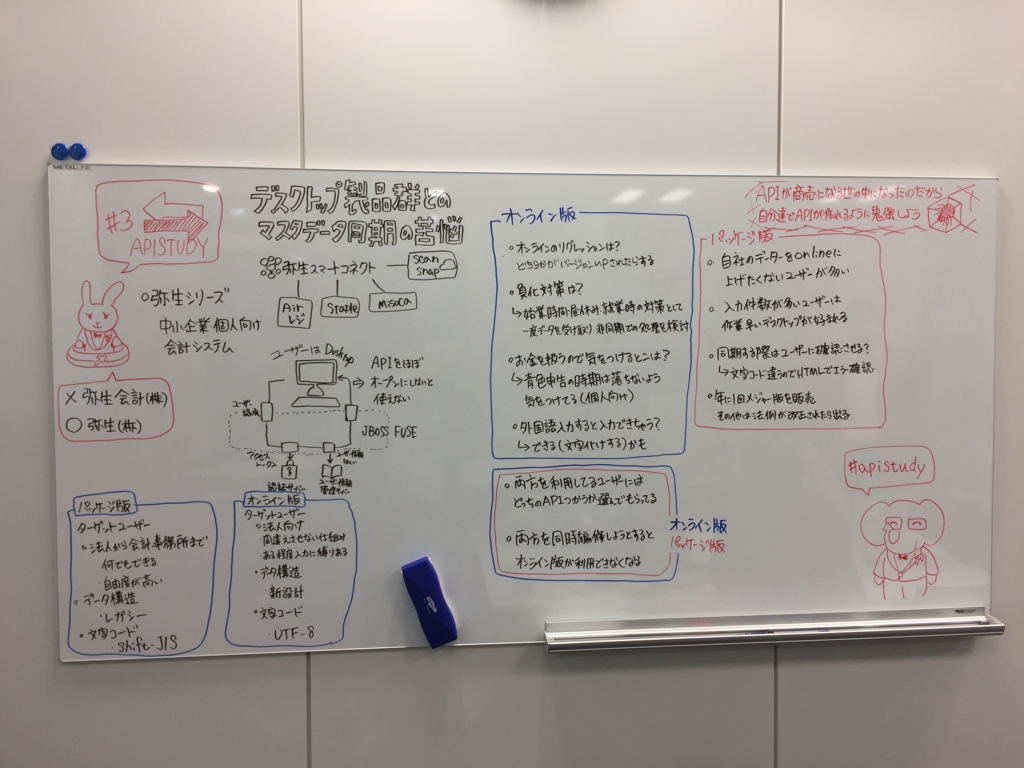 #3
APISTUDY
デスクトップ製品群との
マスクデータ同期の苦悩
弥生スマートコネクト
scan
snap
Air
レジ
Staple
misoca
弥生シリーズ
中小企業 個人向け
会計システム
× 弥生会計(株)
○ 弥生(株)
ユーザーは Desktop
APIをほぼ
オープンにしないと
使えない
JBOSS FUSE
ユーザー
アクセス
トークン
認証サーバー
ユーザー情報
ほしい
ユーザー情報
管理サーバー
パッケージ版
ターゲットユーザー
○法人から会計事務所まで
・何でもできる
・自由度が高い
○データ構造
・レガシー
○文字コード
・shift-JIS
オンライン版
ターゲットユーザー
○法人向け
間違えさせない仕組み
ある程度入力に縛りある
○データ構造
・新設計
○文字コード
・UTF-8
オンライン版
○オンラインのリグレッションは?
どちらかがバージョンupされたらする
○負化対策は?
↳始業時間・昼休み・就業時の対策として
一度データを受け取り 非同期での処理を検討
○お金を扱うので気をつけるとこは?
↳青色申告の時期は落ちないよう
気をつけてる(個人向け)
○外国語入力すると入力できちゃう?
↳できる(文字化けする)かも
○両方を利用してるユーザーには
どっちのAPIつかうか選んでもらってる
○両方を同時編修しようとすると
オンライン版が利用できなくなる
オンライン版
パッケージ版
APIが商売になる世の中になったのだから
自分達でAPIが作れるように勉強しよう
パッケージ版
○自社のデーターをonlineに
上げたくないユーザーが多い
○入力件数が多いユーザーは
作業早いデスクトップが好まれる
○同期する際はユーザーに確認させる?
↳文字コード違うのでHTMLでエラー確認
○年に1回メジャー版を販売
その他は法例が改正されたら出る
#apistudy